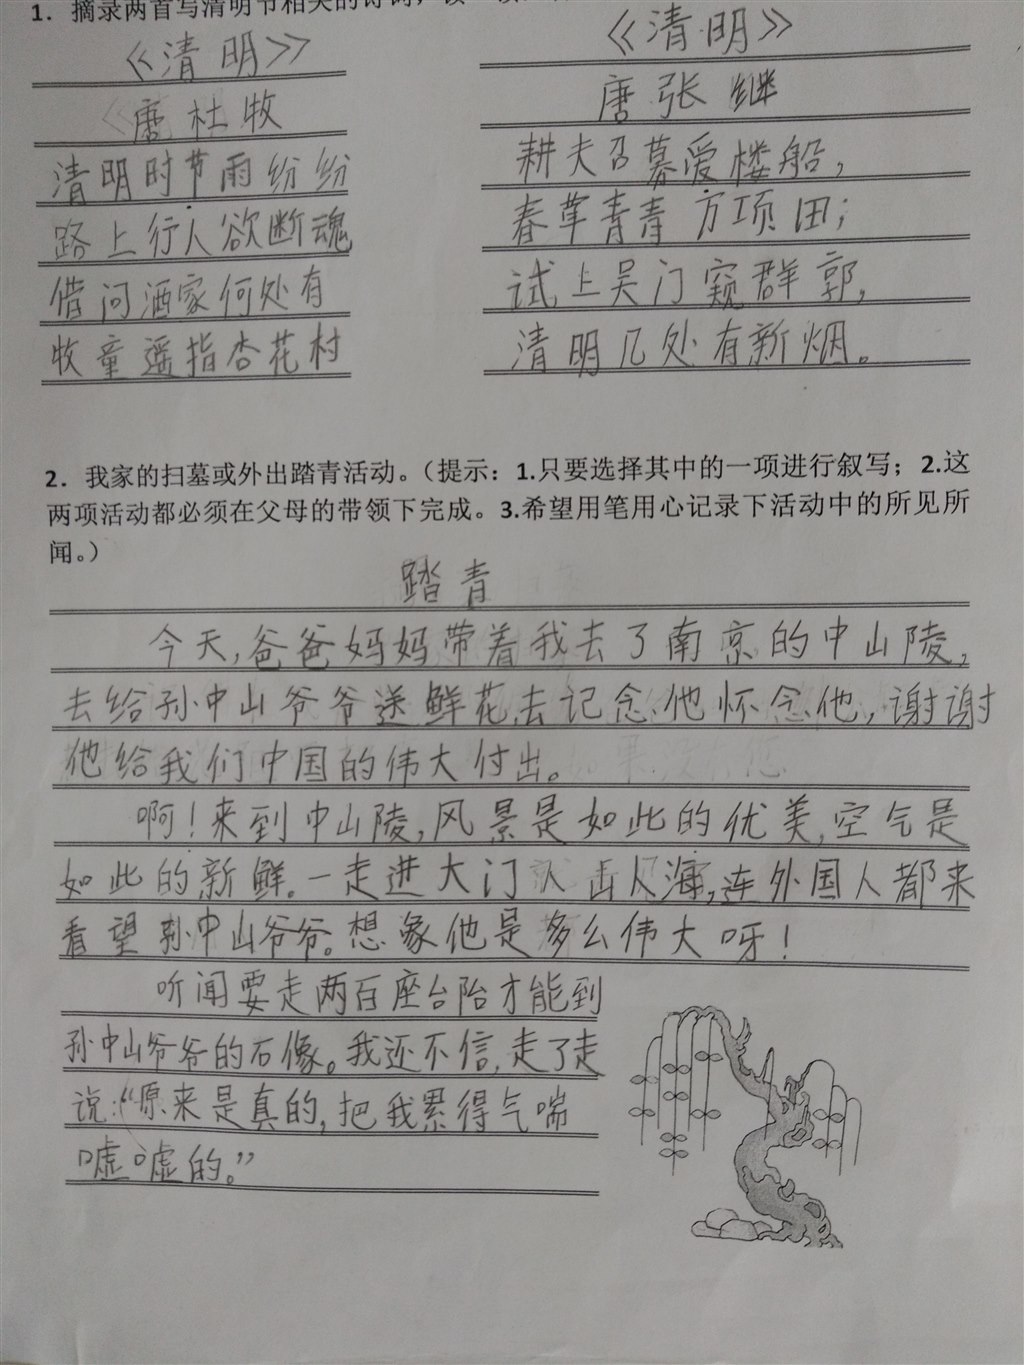 1．摘录两首写清明节相关的诗词，读一读
《清明》
唐 杜牧
清明时节雨纷纷
路上行人欲断魂
借问酒家何处有
牧童遥指杏花村
《清明》
唐 张继
耕夫召募爱楼船，
春草青青万项田；
试上吴门窥群郭，
清明几处有新烟。
2．我家的扫墓或外出踏青活动。（提示：1.只要选择其中的一项进行叙写；2.这
两项活动都必须在父母的带领下完成。3.希望用笔用心记录下活动中的所见所
闻。）
踏青
今天，爸爸妈妈带着我去了南京的中山陵，
去给孙中山爷爷送鲜花，去记念他怀念他，谢谢
他给我们中国的伟大付出。
啊！来到中山陵，风景是如此的优美，空气是
如此的新鲜。一走进大门人击人海，连外国人都来
看望孙中山爷爷。想象他是多么伟大呀！
听闻要走两百座台阶才能到
孙中山爷爷的石像。我还不信，走了走
说：“原来是真的，把我累得气喘
嘘嘘的。”